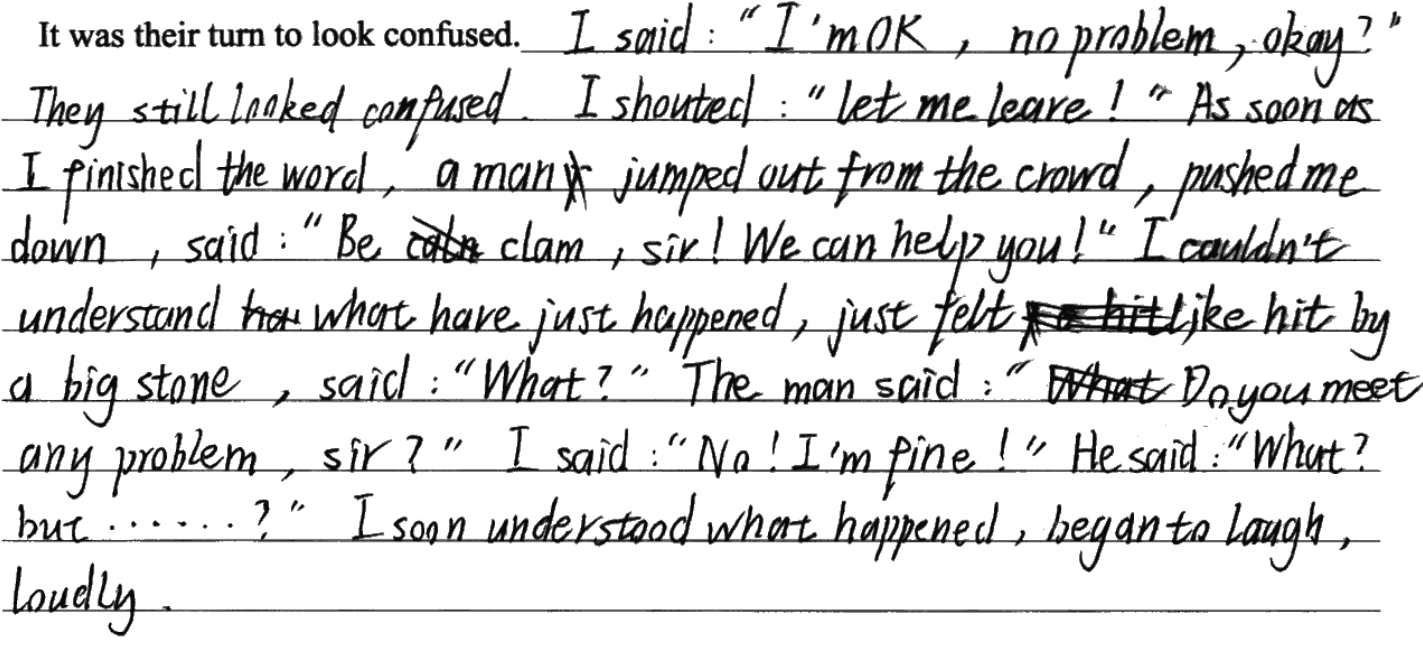 It was their turn to look confused. I said : "I'm OK , no problem, okay?"
They still looked confused. I shouted : "let me leave ! " As soon as
I finished the word , a man jumped out from the crowd , pushed me
down , said : "Be clam , sir ! We can help you ! " I couldn't
understand what have just happened , just felt like hit by
a big stone , said : "What ? " The man said : " Do you meet
any problem , sir ? " I said : "No ! I'm fine ! " He said : "What ?
but ······ ? " I soon understood what happened , began to laugh ,
loudly .